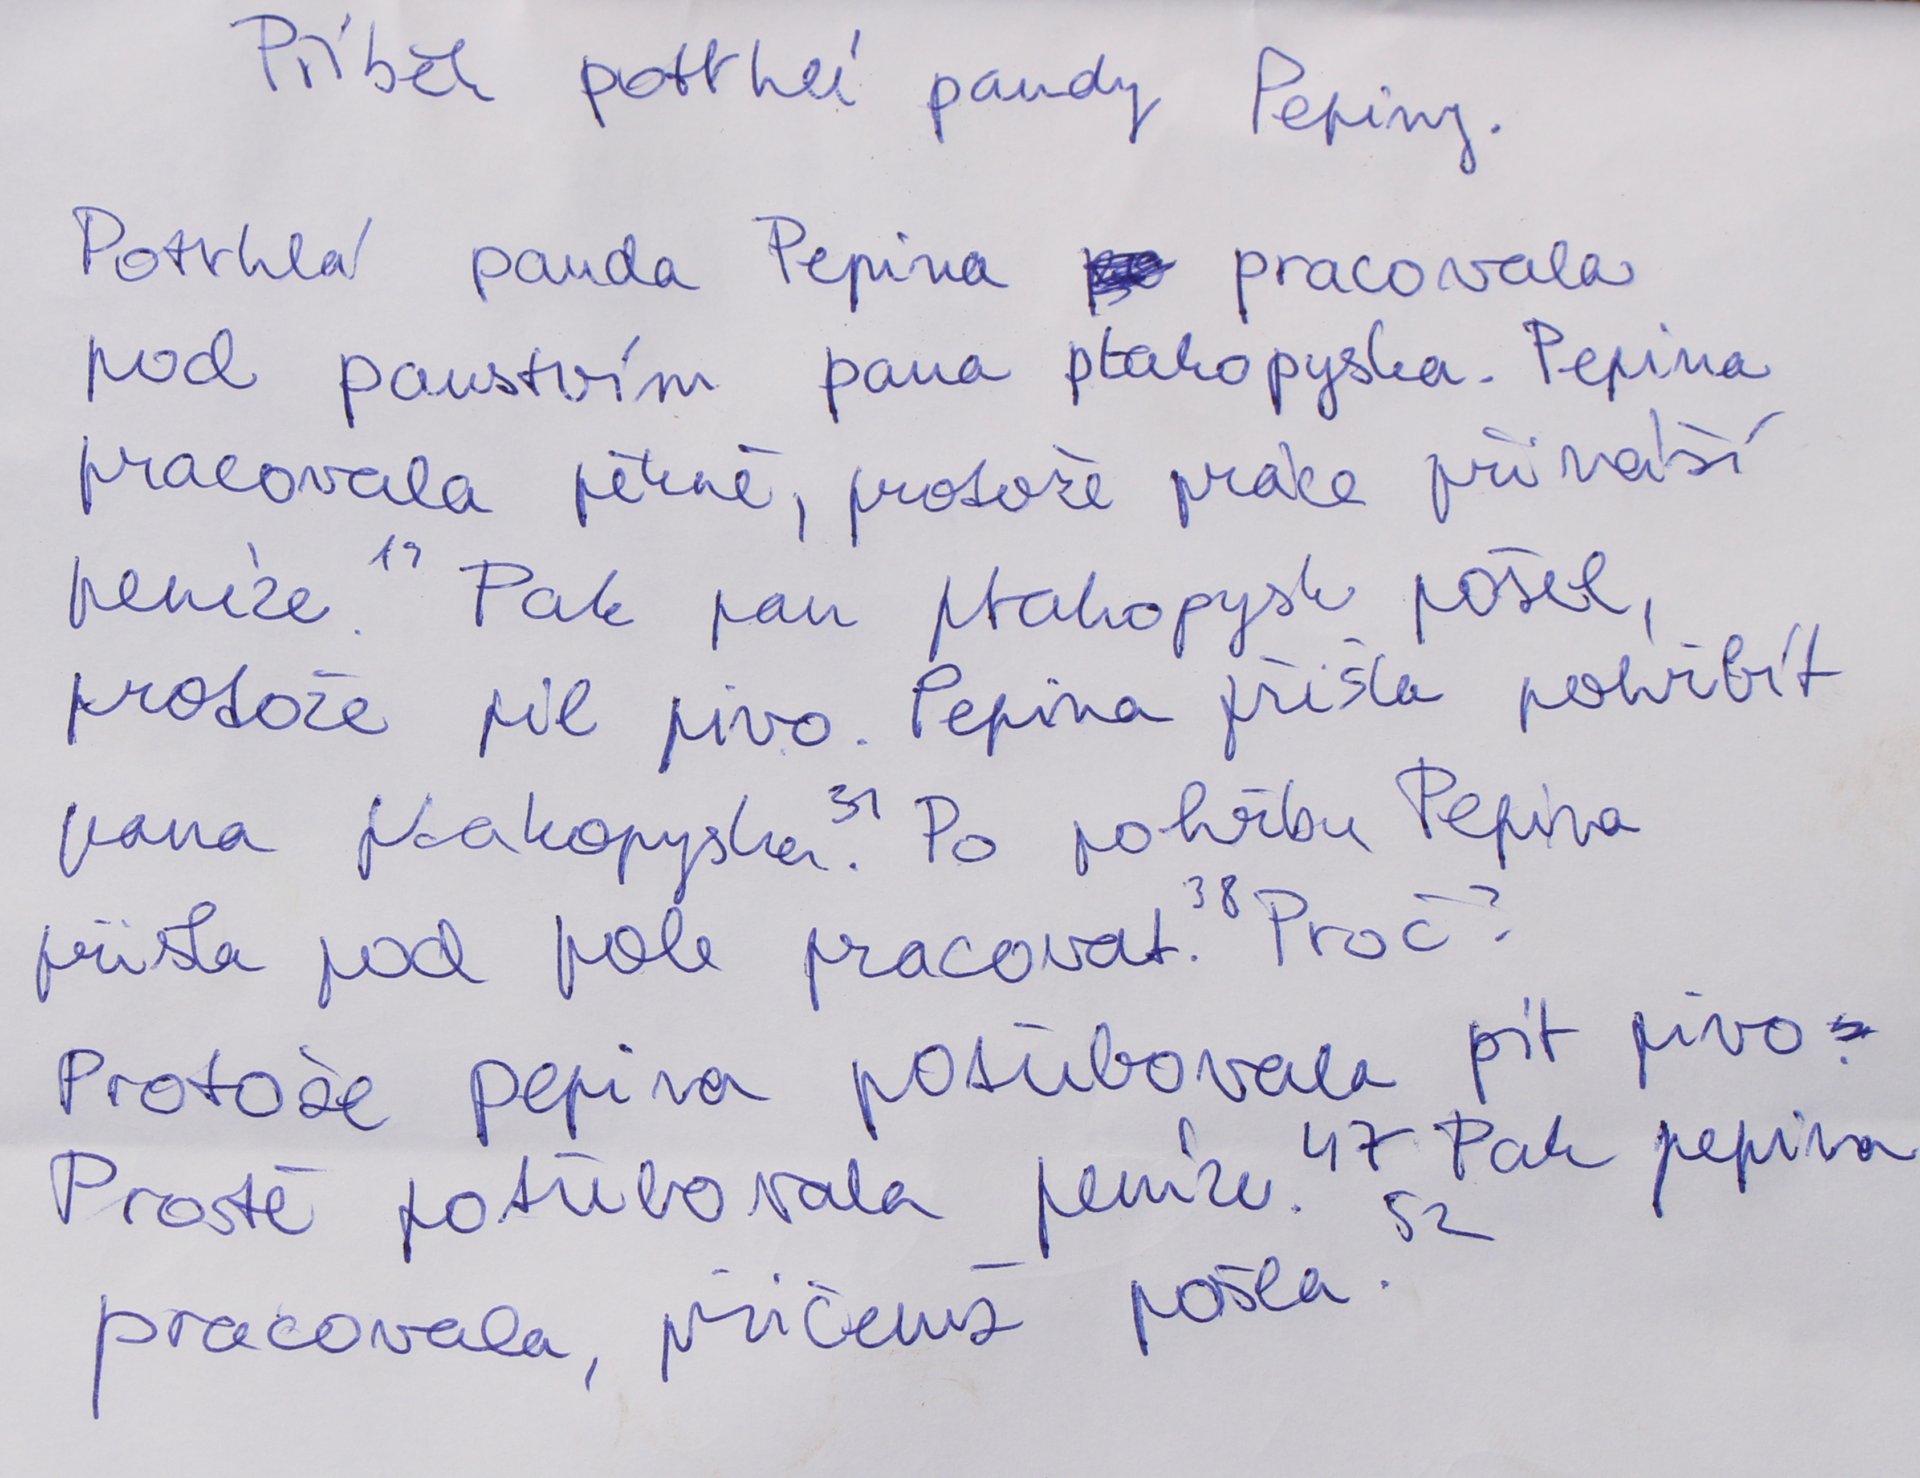 Příběh potrhlé pandy Pepiny.
Potrhlá panda Pepina pracovala
pod panstvím pana ptakopyska. Pepina
pracovala pěkně, protože práce přináší
peníze. 19 Pak pan ptakopysk pošel,
protože pil pivo. Pepina přišla pohřbít
pana ptakopyska. 31 Po pohřbu Pepina
přišla pod pole pracovat. 38 Proč?
Protože pepina potřebovala pít pivo?
Prostě potřebovala peníze. 47 Pak pepina
pracovala, přičemž pošla. 52